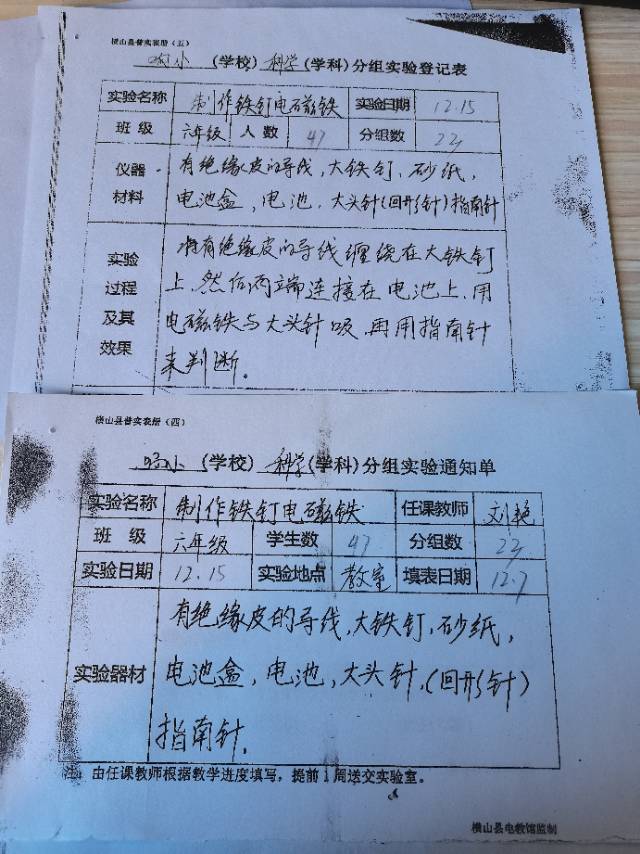 横山县普实表册（五）
响小（学校）科学（学科）分组实验登记表
实验名称 制作铁钉电磁铁 实验日期 12.15
班 级 六年级 人 数 47 分组数
仪器 有绝缘皮的导线，大铁钉、砂纸，
材料 电池盒，电池．大头针（回形针）指南针
实验 将有绝缘皮的导线缠绕在大铁钉
过程 上，然后两端连接在电池上，用
及其 电磁铁与大头针吸，再用指南针
效果 来判断．
横山县普实表册（四）
响小（学校）科学（学科）分组实验通知单
实验名称 制作铁钉电磁铁 任课教师 刘艳
班 级 六年级 学生数 47 分组数
实验日期 12.15 实验地点 教室 填表日期 12.7
有绝缘皮的导线，大铁钉，砂纸，
实验器材 电池盒，电池，大头针，（回形针）
指南针．
注：由任课教师根据教学进度填写，提前1周送交实验室。
横山县电教馆监制